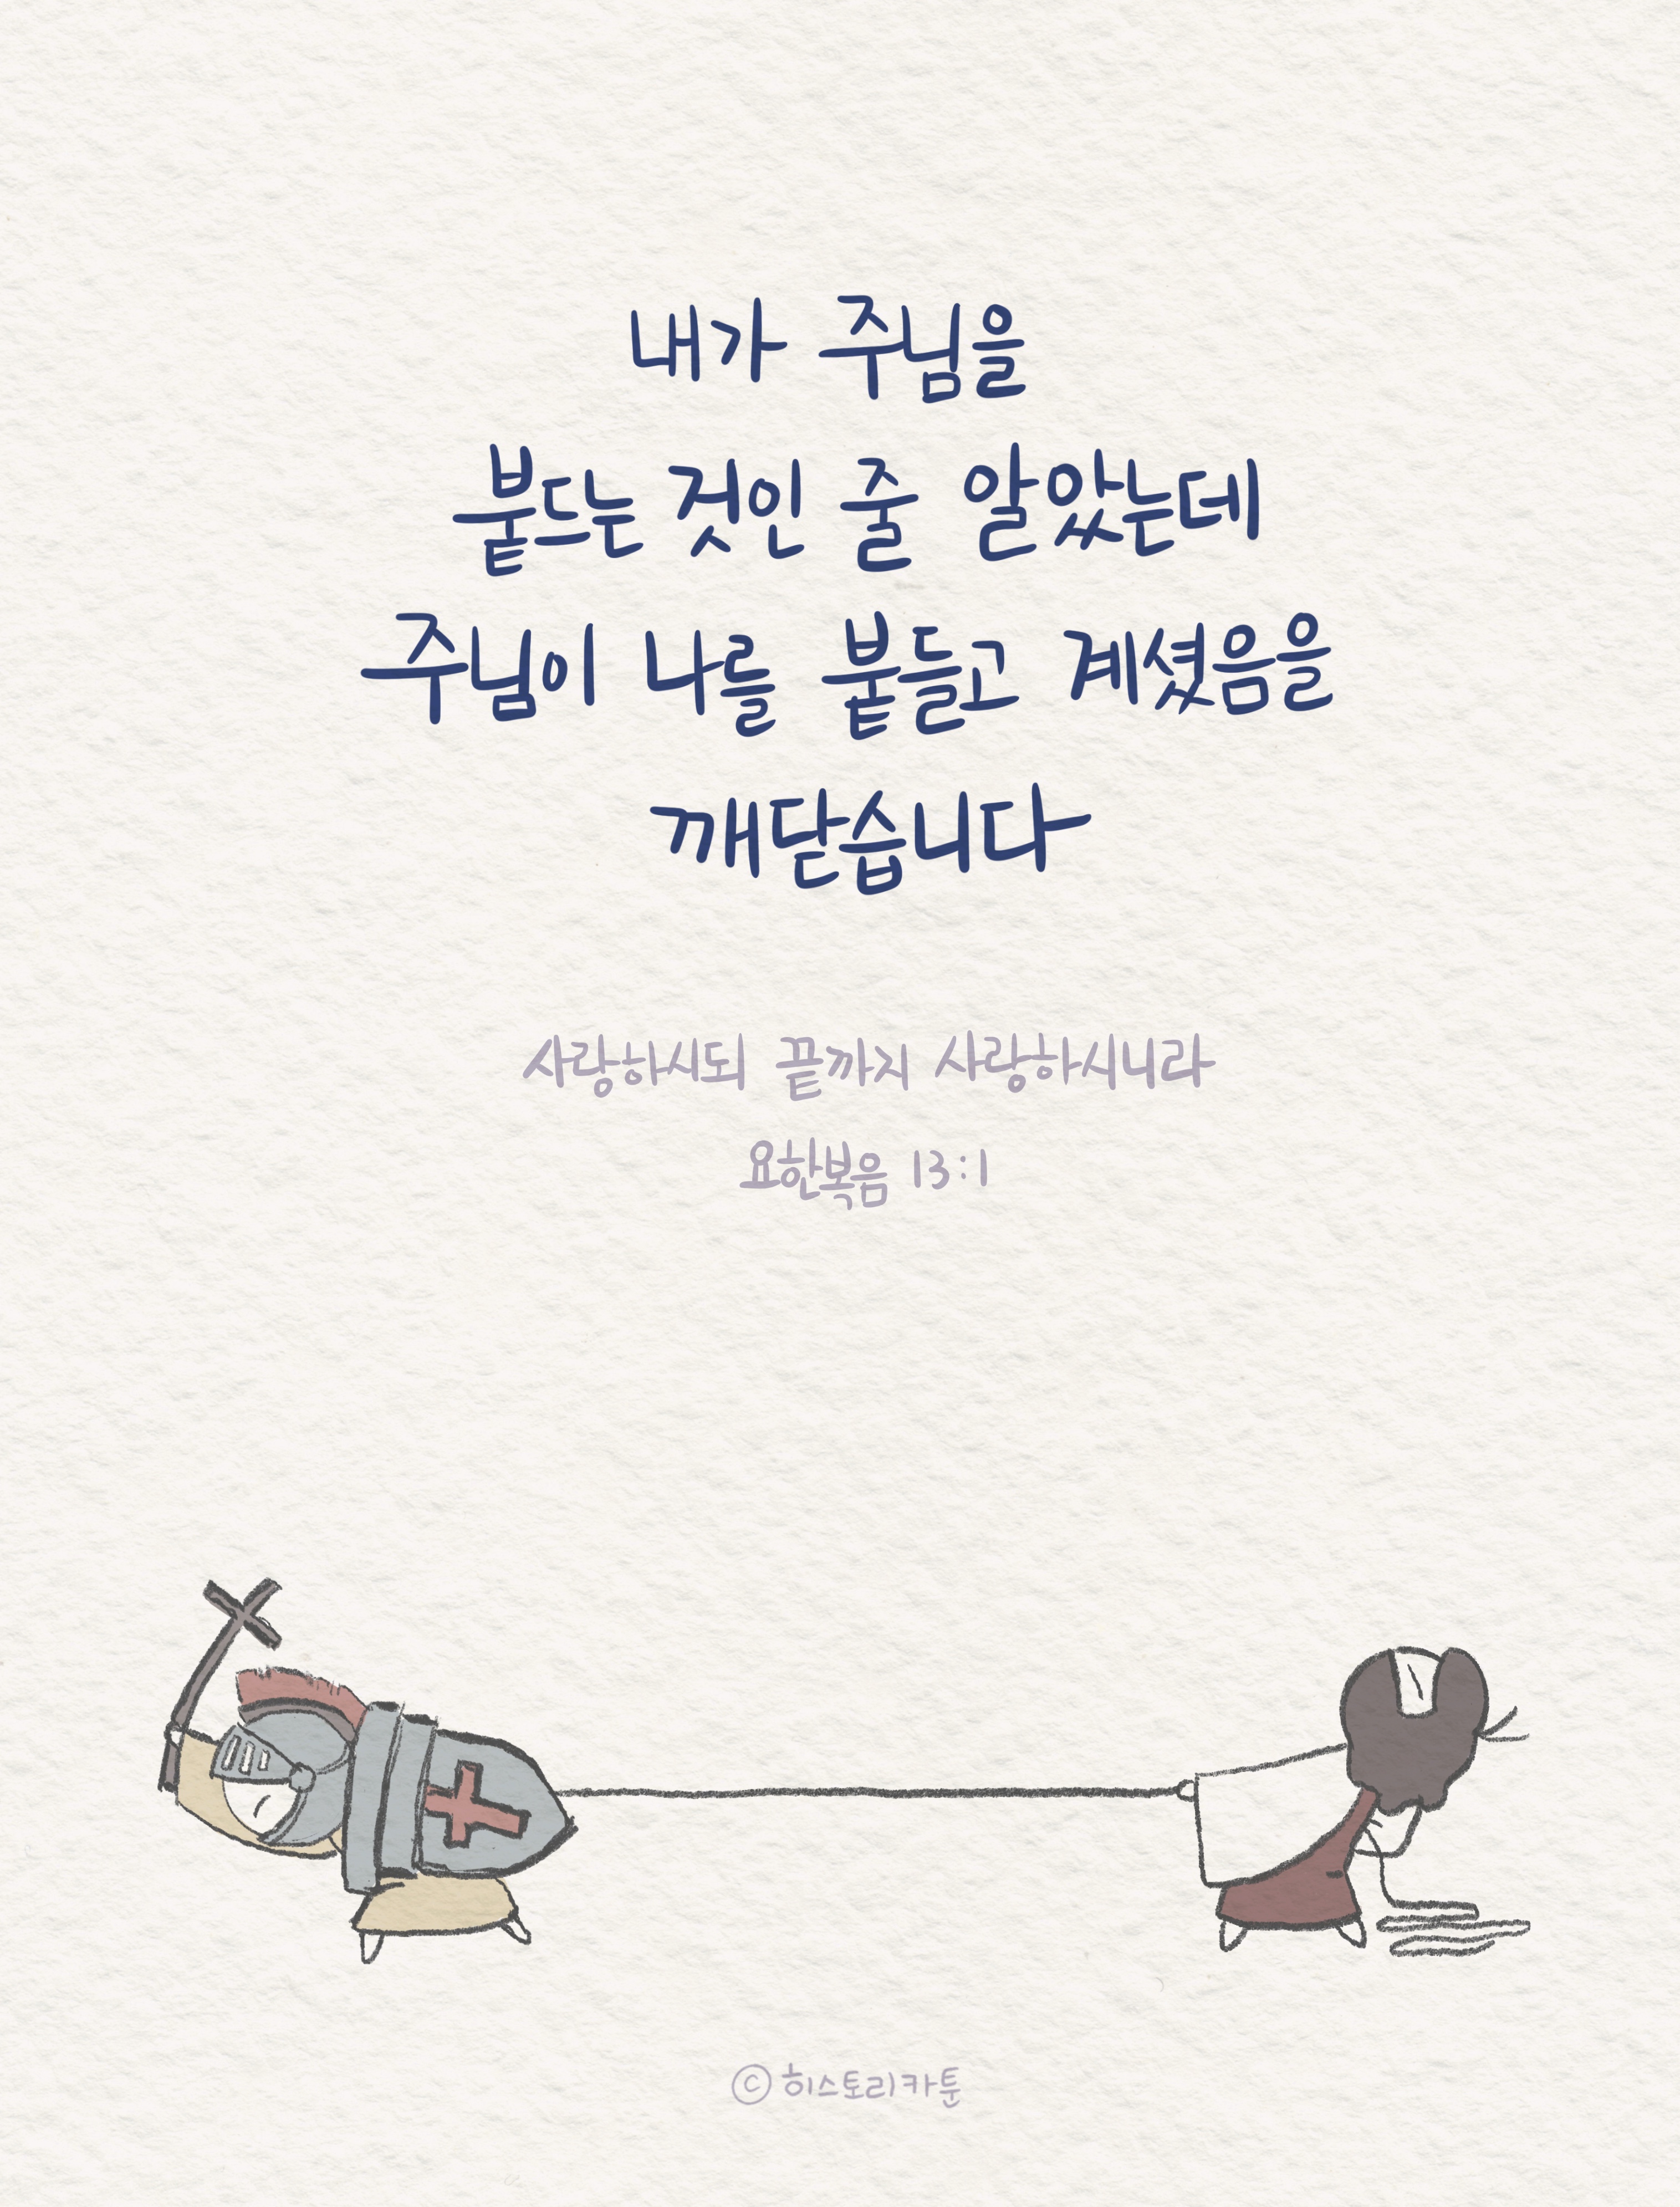 내가 주님을
붙드는 것인 줄 알았는데
주님이 나를 붙들고 계셨음을
깨닫습니다
사랑하시되 끝까지 사랑하시니라
요한복음 13:1
ⓒ 히스토리카툰